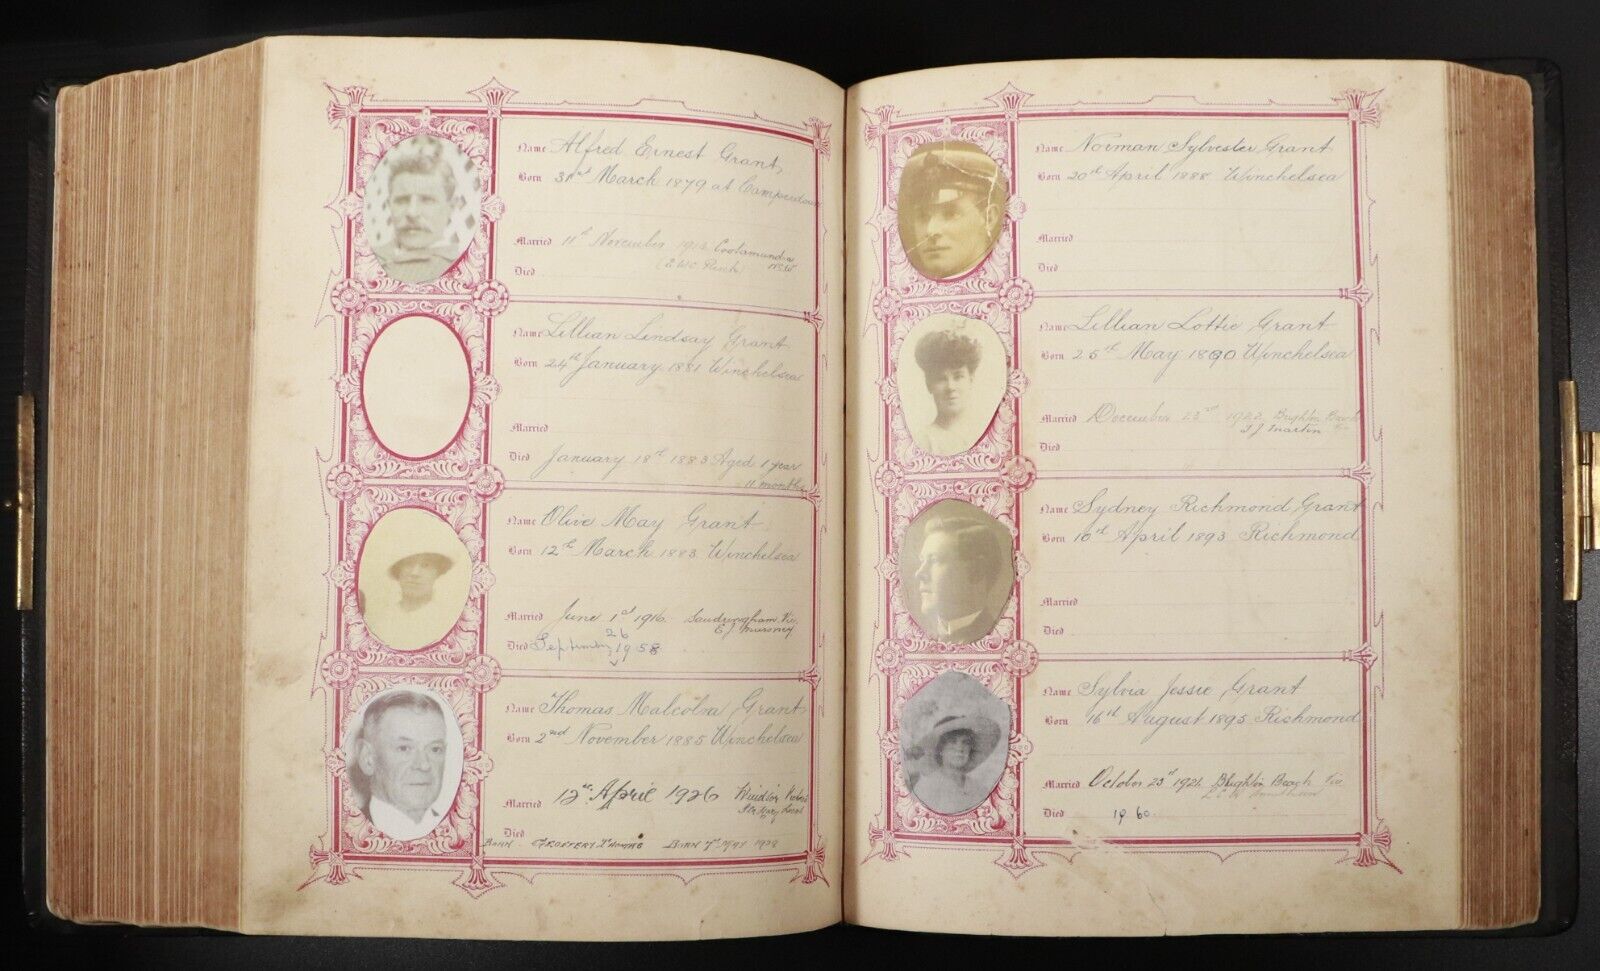 Name Alfred Ernest Grant,
Born 31st March 1879 at Camperdown
Married 11th November 1913 Cootamundra
N.S.W.
Died
Name Lillian Lindsay Grant
Born 24th January 1881 Winchelsea
Married
Died January 18th 1883 Aged 1 year
11 months
Name Olive May Grant
Born 12th March 1883 Winchelsea
Married June 1st 1916. Sandringham Vic.
Died September 26 1958
Name Thomas Malcolm Grant
Born 2nd November 1885 Winchelsea
Married 12th April 1926 Windsor
Died
Born 7th May 1928
Name Norman Sylvester Grant
Born 20th April 1888 Winchelsea
Married
Died
Name Lillian Lottie Grant
Born 25th May 1890 Winchelsea
Married December 23rd 1922 Brighton Beach
T J Martin Vic
Died
Name Sydney Richmond Grant
Born 10th April 1893 Richmond
Married
Died
Name Sylvia Jessie Grant
Born 16th August 1895 Richmond
Married October 25th 1921 Brighton Beach Vic
Died 1960.